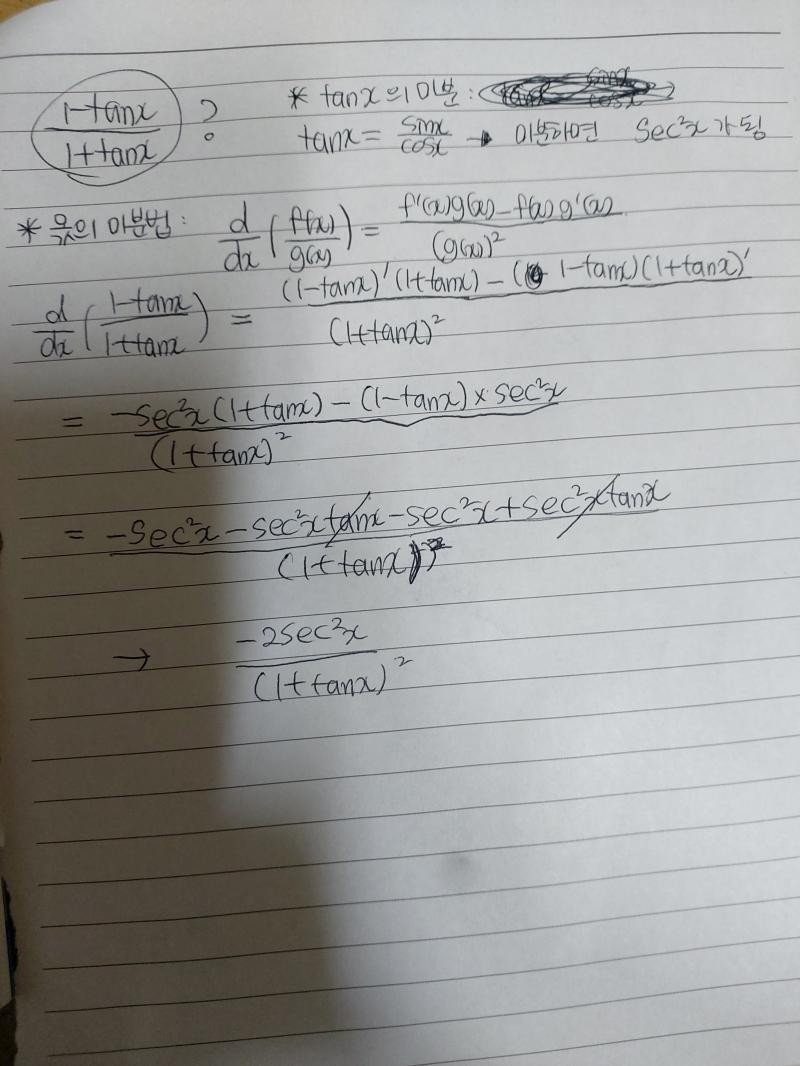 (1-tanx)/(1+tanx) ? * tanx의 미분:
tanx = sinx/cosx → 미분하면 sec²x가 됨
* 몫의 미분법: d/dx (f(x)/g(x)) = (f'(x)g(x) - f(x)g'(x))/(g(x))²
d/dx ((1-tanx)/(1+tanx)) = ((1-tanx)'(1+tanx) - (1-tanx)(1+tanx)')/(1+tanx)²
= (-sec²x(1+tanx) - (1-tanx) × sec²x)/(1+tanx)²
= (-sec²x - sec²xtanx - sec²x + sec²xtanx)/(1+tanx)²
→ (-2sec²x)/(1+tanx)²